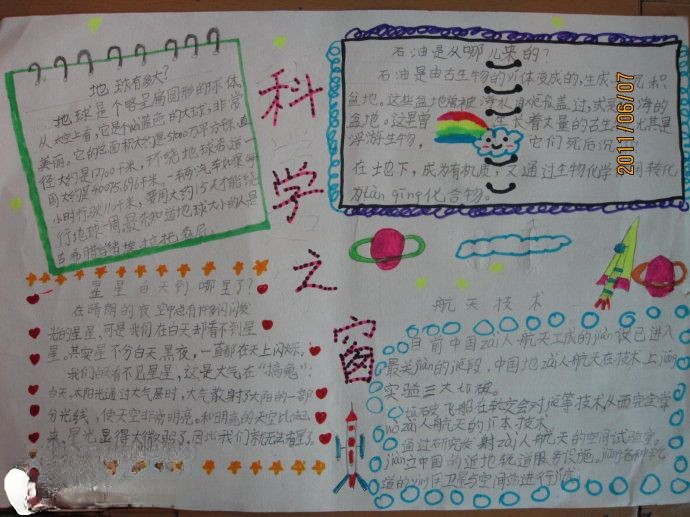 地球有多大?
地球是个略呈扁圆形的球体,
从太空上看,它是个蓝色的大球,非常
美丽。它的总面积大约是51000万平方千米,直
径大约是12700千米,环绕地球赤道一
周大约是40075.696千米。一辆汽车如果每
小时行驶110千米,要用大约15天才能绕
行地球一周。最先知道地球大小的人是
古希腊学者埃拉托色尼。
科学之窗
石油是从哪儿来的?
石油是由古生物的体变成的,生成
盆地。这些盆地曾被海水
盆地。这里曾生长着大量的古生
浮游生物,它们死后沉
在地下,成为有机质,又通过生物化学转化
为tàn qīng化合物。
2011/06/07
星星白天到哪里了?
在晴朗的夜空中也有许多闪闪发
光的星星,可是我们在白天却看不到星
星。其实星不分白天、黑夜,一直都在天上闪烁。
我们白天看不见星星,这是大气在“搞鬼”:
白天,太阳光通过大气层时,大气散射了太阳的一部
分光线,使天空非常明亮。和明亮的天空比起
来,星光显得太微弱了,因此我们就无法看星了。
航天技术
目前中国zài人航天工成的jiàn议已进入
最关jiàn的阶段,中国地zài人航天在技术上jiāng
实验三大切破。
飞船在轨交会对jiē等技术,从而完全学
wò zài人航天的基本技术。
通过研究发射zài人航天的空间试验室。
jiàn立中国的道地轨道服务设施。
道的yìn同卫星与空间站进行